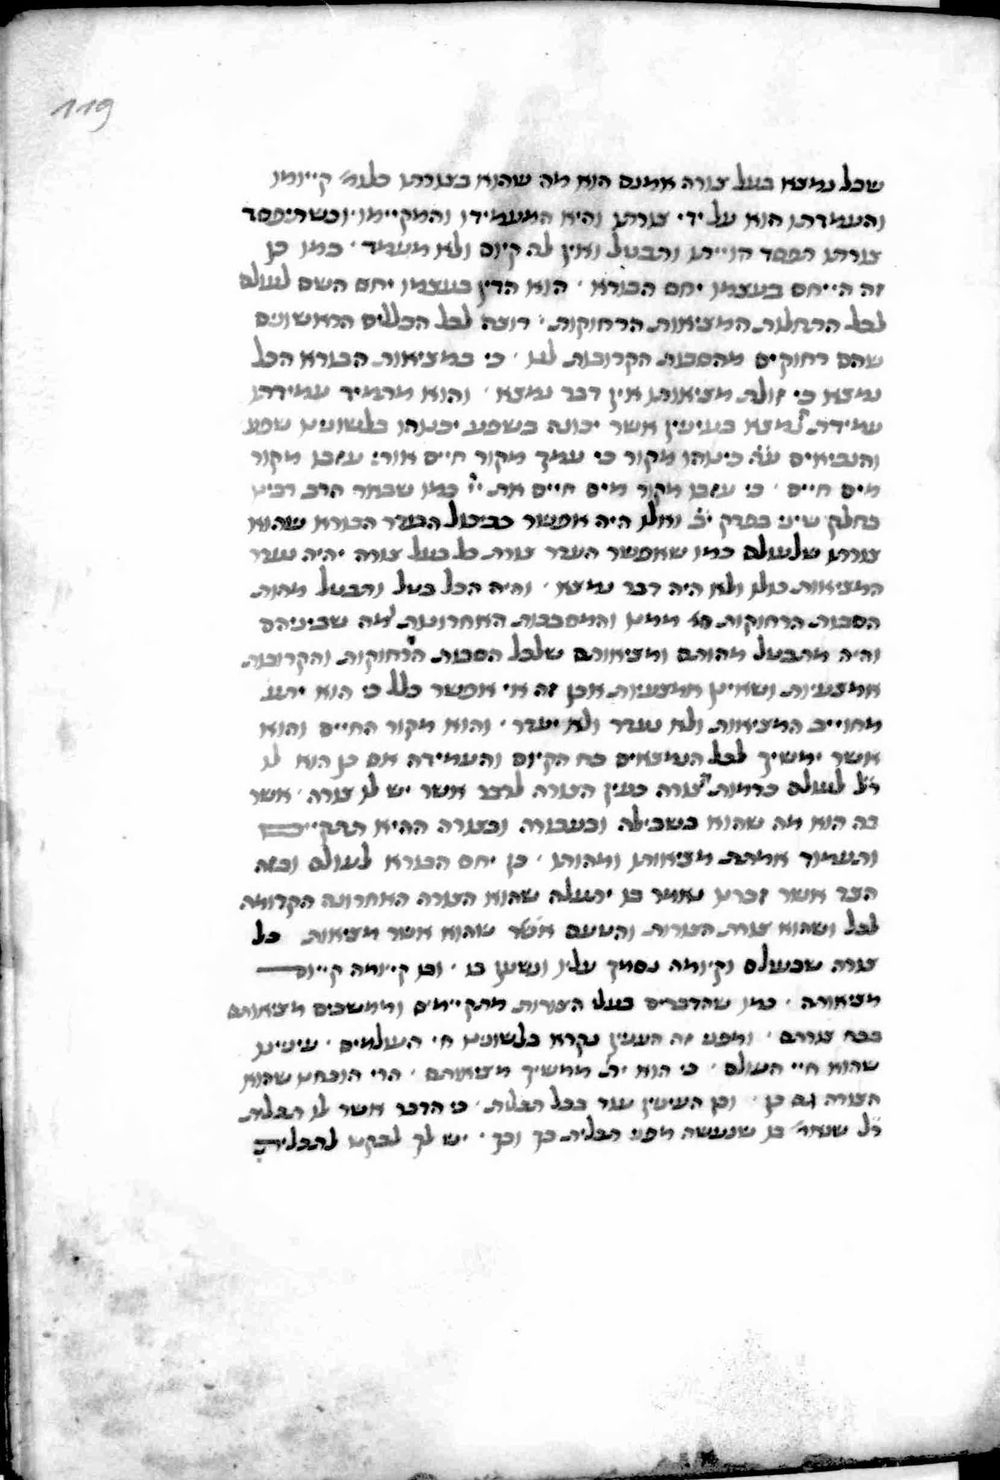 119
שכל נמצא בעל צורה אמנם הוא מה שהוא בצורתו כלומ' קיומו
והעמדתו הוא על ידי צורתו והיא המעמידו והמקיימו וכשתיפסד
צורתו תפסד הוייתו ותבטל ואין לה קיום ולא מעמד · כמו כן
זה הייחס בעצמו יחס הבורא · הוא הדין בעצמו יחס השם לעולם
לכל התחלות המציאות הרחוקות · רוצה לכל הכללים הראשונים
שהם רחוקים מהסבות הקרובות לנו · כי במציאות הבורא הכל
נמצא כי זולת מציאותו אין דבר נמצא · והוא מתמיד עמידתו
עמידת נמצא בעיניין אשר יכונה בשפע יכנוהו בלשונינו שפע
והנביאים ע״ה כינוהו מקור כי עמך מקור חיים אור: עזבו מקור
מים חיים · כי עזבו מקור מים חיים את יי' כמו שבאר הרב רבינו
בחלק שיני בפרק י״ב ואלו היה אפשר כביכול העדר הבורא שהוא
צורתו שלעולם כמו שאפשר העדר צורת כל בעל צורה יהיה נעדר
המציאות כולו ולא היה דבר נמצא · והיה הכל בטל ותבטל מהות
הסבות הרחוקות ממנו והמסבבות האחרונות ומה שביניהם
והיה מתבטל מהותם ומציאותם שלכל הסבות הרחוקות והקרובות
אמצעיות ושאינן אמצעיות אכן זה אי אפשר כלל כי הוא ית'
מחוייב המציאות ולא נעדר ולא יעדר · והוא מקור החיים והוא
אשר ימשיך לכל הנמצאים כח הקיום והעמידה אם כן הוא לו
ר״ל לעולם כדמות הצורה כעין הצורה לדבר אשר יש לו צורה · אשר
בה הוא מה שהוא בשבילה ובעבורה ובצורה ההיא תתקיים
ותעמוד אמתת מציאותו ומהותו · כן יחס הבורא לעולם ובזה
הצד אשר זכרנו נאמר בו יתעלה שהוא הצורה האחרונה הקדומה
לכל ושהוא צורת הצורות והטעם אשר שהוא אשר מציאות כל
צורה שבעולם וקיומה נסמך עליו ונשען בו · ובו קיומה קיום
מציאותה · כמו שהדברים בעלי הצורות מתקיימים וממשכים מציאותם
בכח צורתם · ומפני זה העניין נקרא בלשונינו חי העולמים · עיניינו
שהוא חיי העולם · כי הוא ית' ממשיך מציאותם · הרי הוכחנו שהוא
הצורה גם כן · וכן העיניין עוד בכל תכלית · כי הדבר אשר לו תכלית
ר״ל שנאמ' בו שנעשה מפני תכלית כך וכך · יש לך לבקש לתכלית